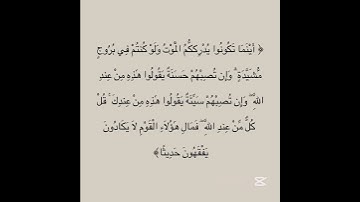 ﴿ أَيْنَمَا تَكُونُوا يُدْرِككُّمُ الْمَوْتُ وَلَوْ كُنتُمْ فِي بُرُوجٍ
مُّشَيَّدَةٍ ۗ وَإِن تُصِبْهُمْ حَسَنَةٌ يَقُولُوا هَٰذِهِ مِنْ عِندِ
اللَّهِ ۖ وَإِن تُصِبْهُمْ سَيِّئَةٌ يَقُولُوا هَٰذِهِ مِنْ عِندِكَ ۚ قُلْ
كُلٌّ مِّنْ عِندِ اللَّهِ ۖ فَمَالِ هَٰؤُلَاءِ الْقَوْمِ لَا يَكَادُونَ
يَفْقَهُونَ حَدِيثًا﴾